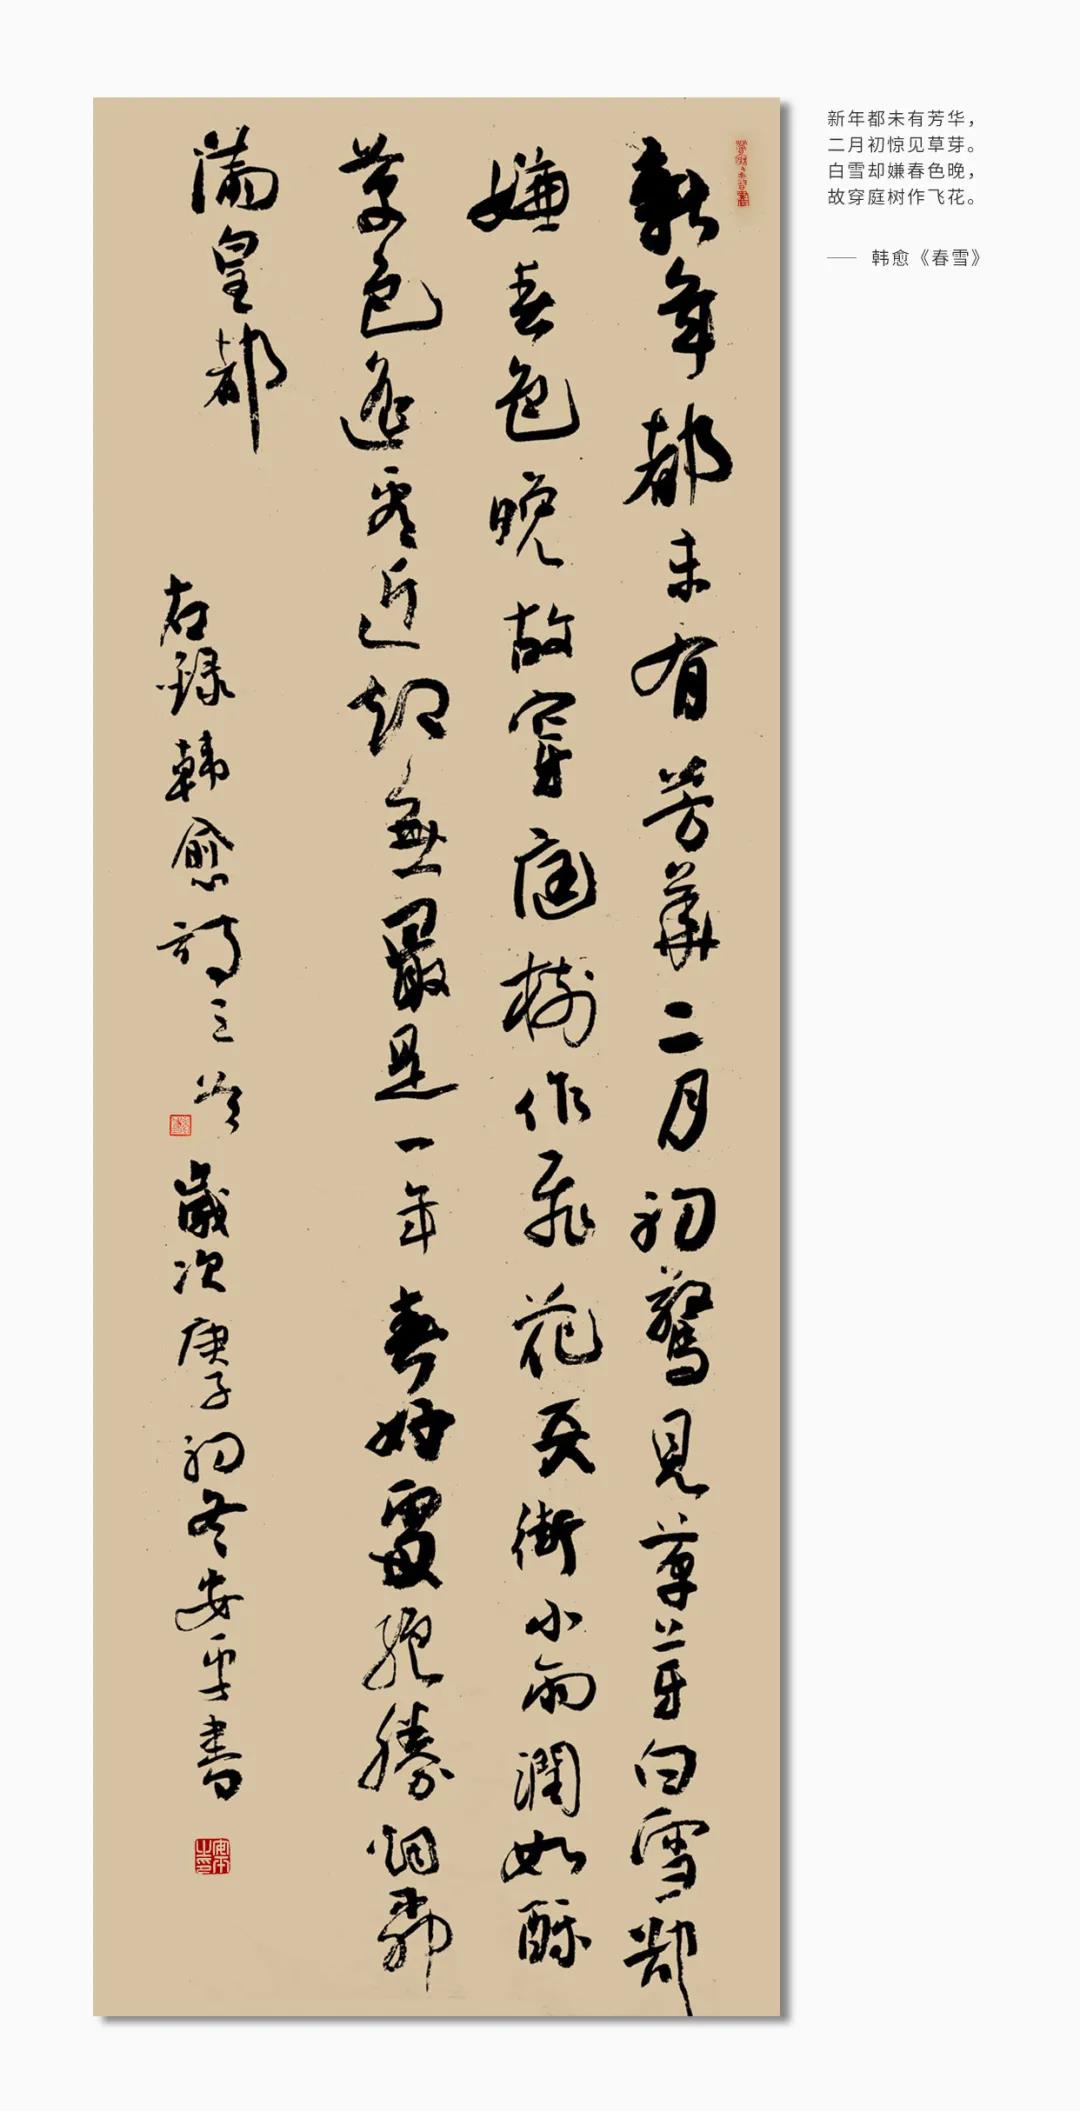 新年都未有芳華二月初驚見草芽白雪却
嫌春色晚故穿庭樹作飛花天街小雨潤如酥
草色遙看近却無最是一年春好處絕勝烟柳
滿皇都
右録韓愈詩二首
歲次庚子初冬安平書
新年都未有芳华，
二月初惊见草芽。
白雪却嫌春色晚，
故穿庭树作飞花。
—— 韩愈《春雪》